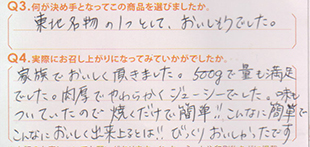 Q3.何が決め手となってこの商品を選びましたか。
東北名物の1つとして、おいしそうでした。
Q4.実際にお召し上がりになってみていかがでしたか。
家族でおいしく頂きました。500gで量も満足
でした。肉厚でやわらかくジューシーでした。味も
ついていたので焼くだけで簡単!!こんなに簡単で
こんなにおいしく出来上るとは!!びっくりおいしかったです